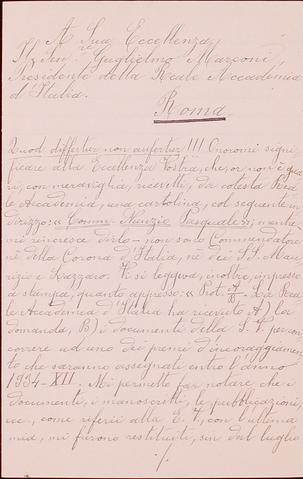 A Sua Eccellenza,
Il Sen.re Guglielmo Marconi,
Presidente della Reale Accademia
d'Italia.
Roma
Quod differtur non aufertur!!! Onoromi signi,
ficare alla Eccellenza Vostra, che, or non è qua
ri, con meraviglia, ricevetti, da cotesta Rea
le Accademia, una cartolina, col seguente in
dirizzo: « Comm. Nunzio Pasquale »; mentre,
mi rincresce dirlo - non sono Commendatore
nè della Corona d'Italia, nè dei S.S. Mau,
rizio e Lazzaro. Vi si leggeva, inoltre, impresso
a stampa, quanto appresso: « Prot. A/B - La Rea
le Accademia d'Italia ha ricevuto A) la
domanda, B) i documenti della S. V. per con
correre ad uno dei premi d'incoraggiamen
to che saranno assegnati entro l'anno
1934-XII. Mi permetto far notare che i
documenti, i manoscritti, le pubblicazioni,
ecc., come riferii alla E. V., con l'ultima
mia, mi furono restituiti, sin dal luglio
./.